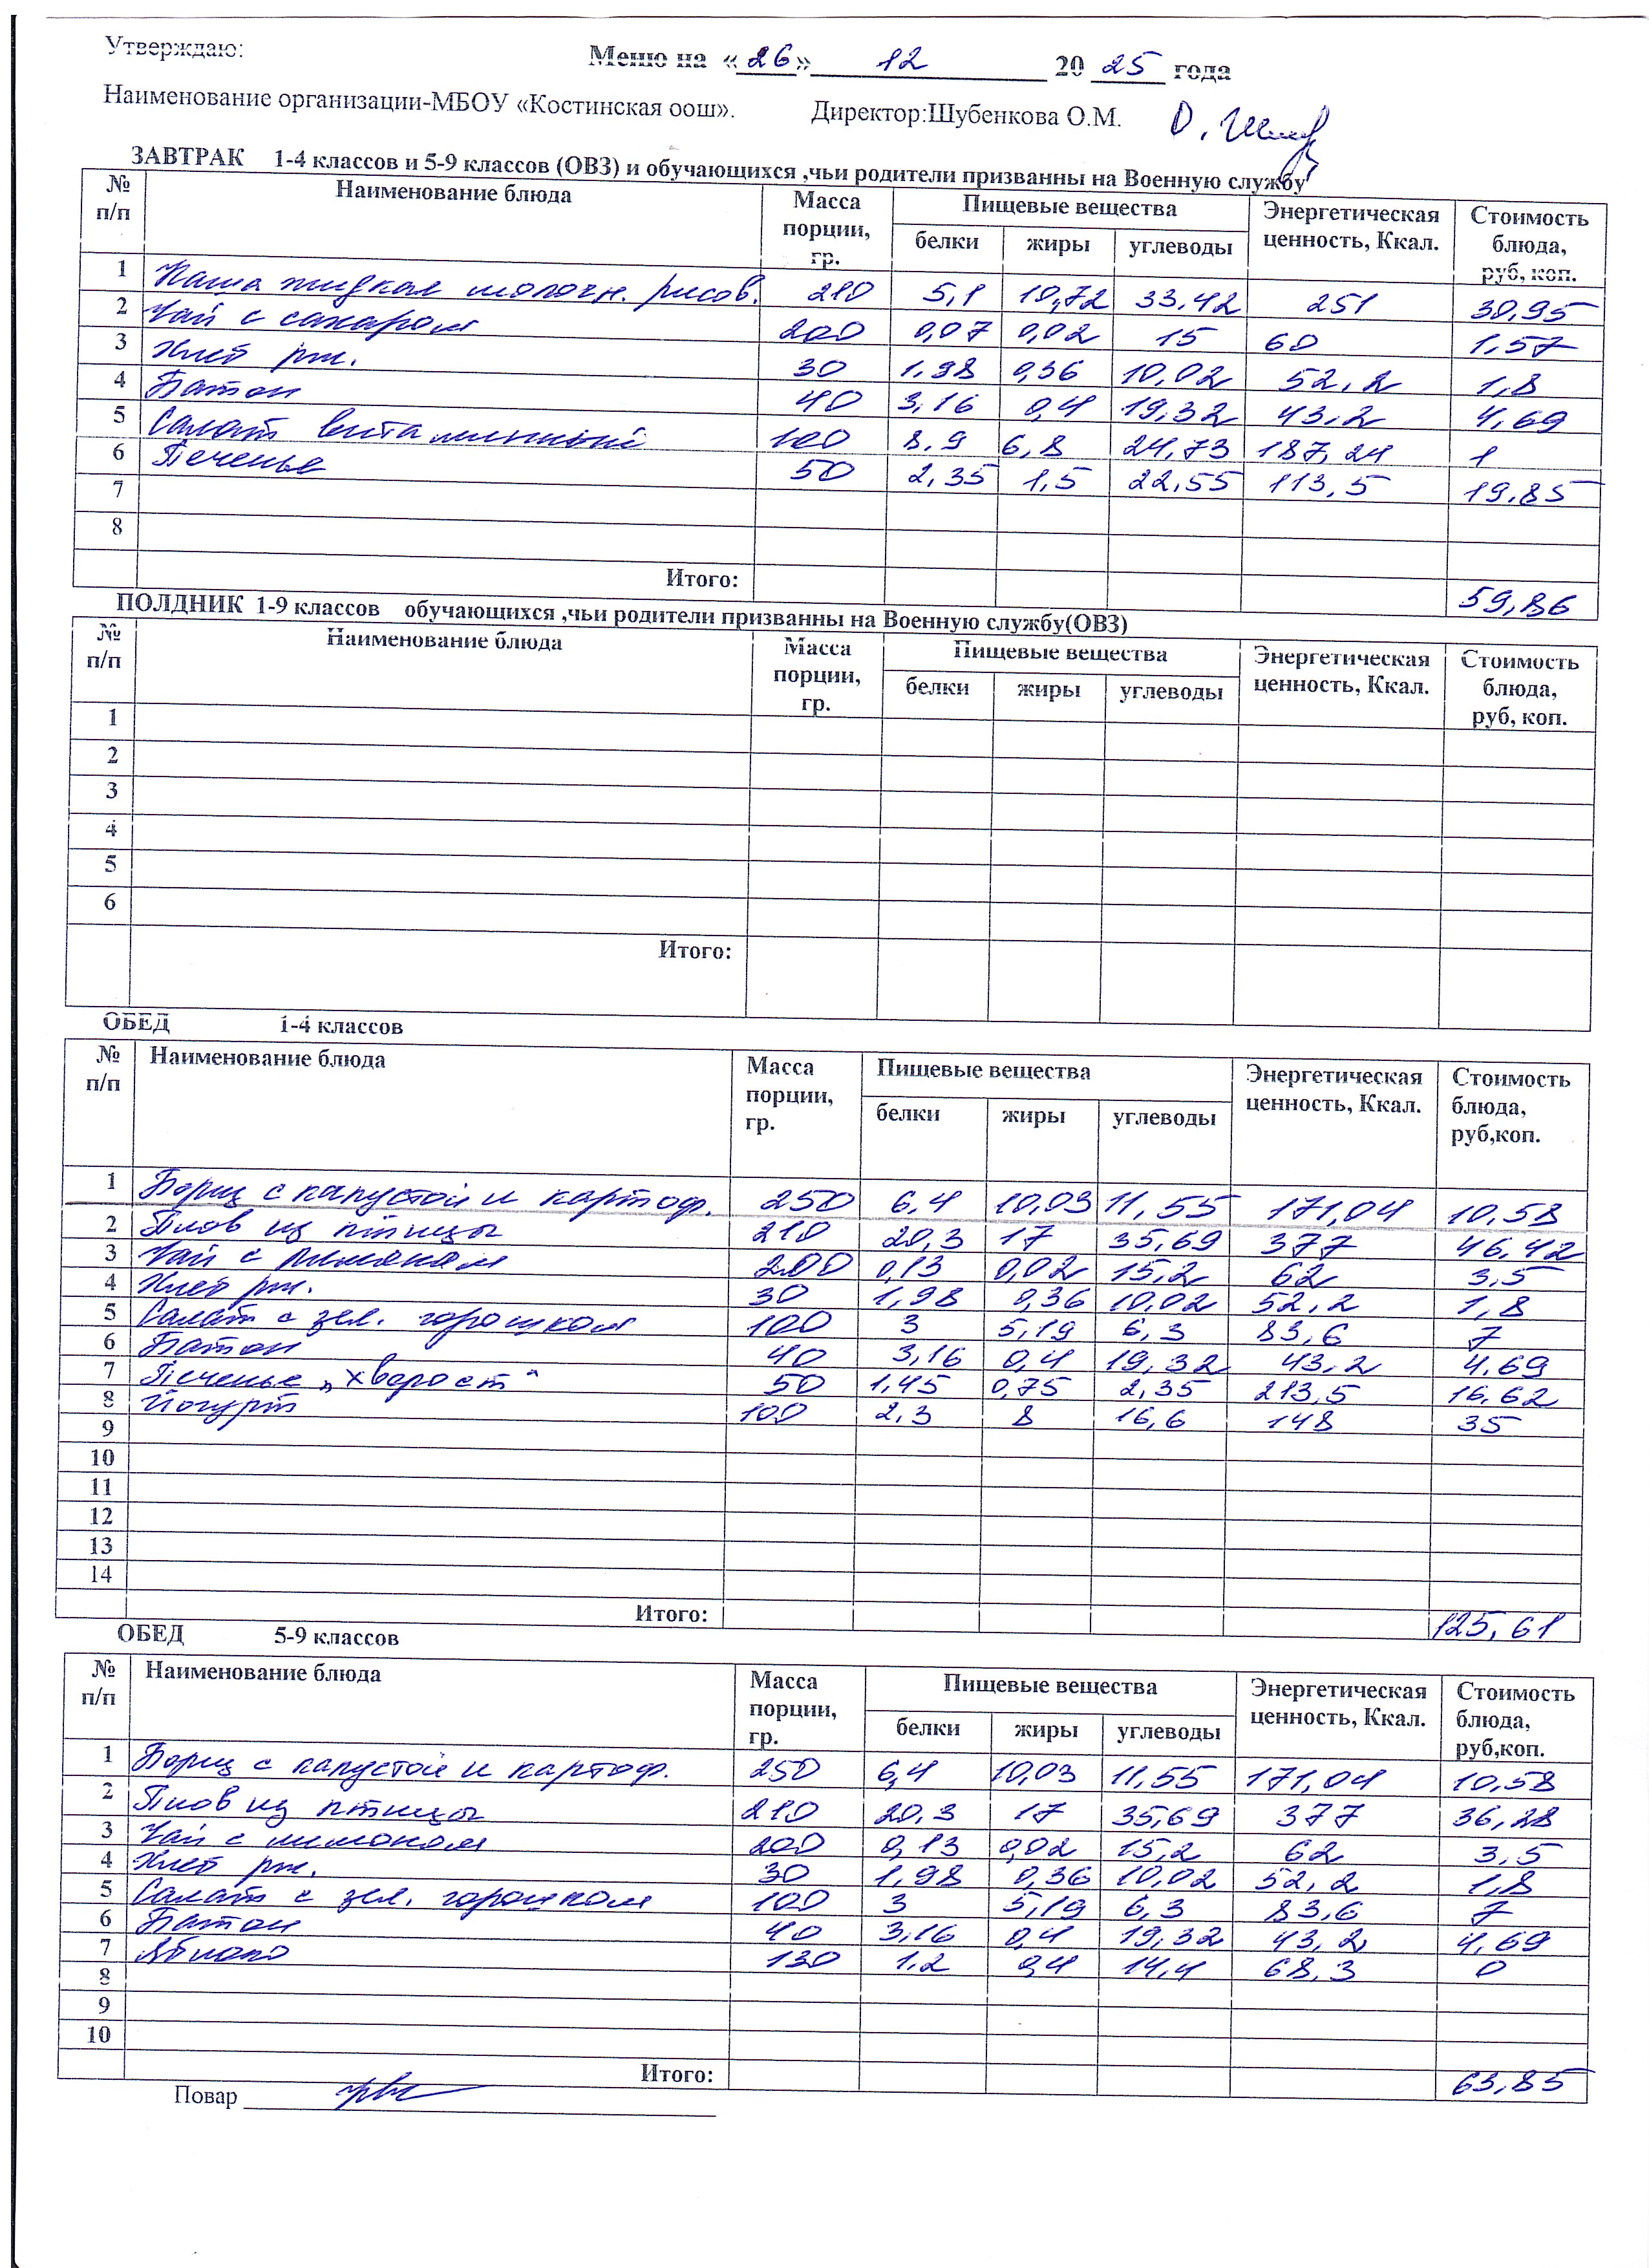 Утверждаю:
Меню на «26» 12 20 25 года
Наименование организации-МБОУ «Костинская оош». Директор:Шубенкова О.М.
ЗАВТРАК 1-4 классов и 5-9 классов (ОВЗ) и обучающихся ,чьи родители призванны на Военную службу
№ п/п Наименование блюда Масса порции, гр. Пищевые вещества Энергетическая ценность, Ккал. Стоимость блюда, руб, коп.
белки жиры углеводы
1 Каша жидкая молочн. рисов. 210 5,1 10,72 33,42 251 30,95
2 Чай с сахаром 200 0,07 0,02 15 60 1,57
3 Хлеб рж. 30 1,98 0,36 10,02 52,2 1,8
4 Батон 40 3,16 0,4 19,32 43,2 4,69
5 Салат витаминный 100 8,9 6,8 24,73 187,24 1
6 Печенье 50 2,35 1,5 22,55 113,5 19,85
7
8
Итого: 59,86
ПОЛДНИК 1-9 классов обучающихся ,чьи родители призванны на Военную службу(ОВЗ)
№ п/п Наименование блюда Масса порции, гр. Пищевые вещества Энергетическая ценность, Ккал. Стоимость блюда, руб, коп.
белки жиры углеводы
1
2
3
4
5
6
Итого:
ОБЕД 1-4 классов
№ п/п Наименование блюда Масса порции, гр. Пищевые вещества Энергетическая ценность, Ккал. Стоимость блюда, руб,коп.
белки жиры углеводы
1 Борщ с капустой и картоф. 250 6,4 10,03 11,55 171,04 10,58
2 Плов из птицы 210 20,3 17 35,69 377 46,42
3 Чай с лимоном 200 0,13 0,02 15,2 62 3,5
4 Хлеб рж. 30 1,98 0,36 10,02 52,2 1,8
5 Салат с зел. горошком 100 3 5,19 6,3 83,6 7
6 Батон 40 3,16 0,4 19,32 43,2 4,69
7 Печенье „хворост“ 50 1,45 0,75 2,35 213,5 16,62
8 Йогурт 100 2,3 8 16,6 148 35
9
10
11
12
13
14
Итого: 125,61
ОБЕД 5-9 классов
№ п/п Наименование блюда Масса порции, гр. Пищевые вещества Энергетическая ценность, Ккал. Стоимость блюда, руб,коп.
белки жиры углеводы
1 Борщ с капустой и картоф. 250 6,4 10,03 11,55 171,04 10,58
2 Плов из птицы 210 20,3 17 35,69 377 36,28
3 Чай с лимоном 200 0,13 0,02 15,2 62 3,5
4 Хлеб рж. 30 1,98 0,36 10,02 52,2 1,8
5 Салат с зел. горошком 100 3 5,19 6,3 83,6 7
6 Батон 40 3,16 0,4 19,32 43,2 4,69
7 Яблоко 130 1,2 0,4 14,4 68,3 0
8
9
10
Итого: 63,85
Повар